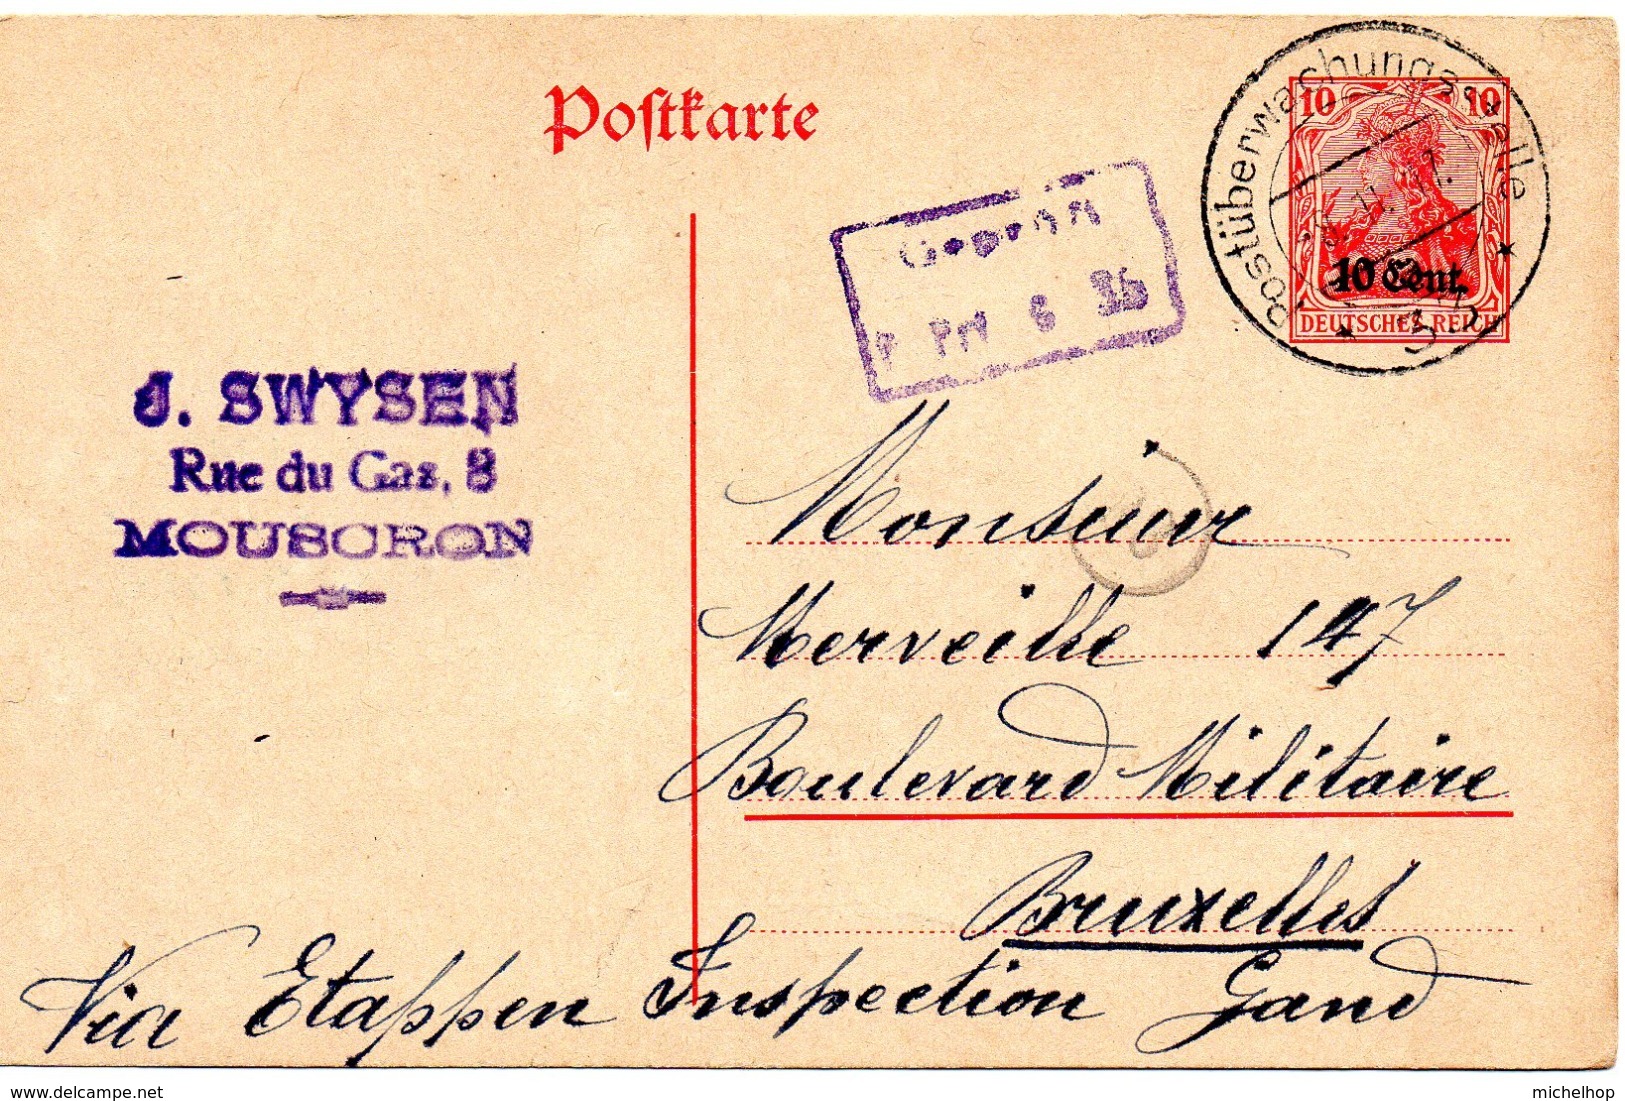 Postkarte
10 10
10 Cent.
DEUTSCHES REICH
Postüberwachungsstelle
11. 17.
35
J. SWYSEN
Rue du Gaz, 8
MOUSCRON
Monsieur
Merveille 147
Boulevard Militaire
Bruxelles
Via Etappen Inspection Gand
www.delcampe.net
michelhop